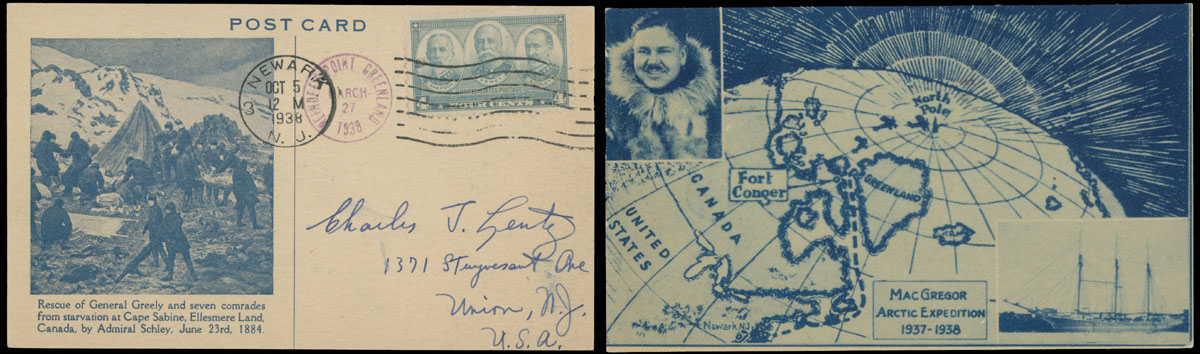 POST CARD
NEWARK
3
OCT 5
12 M
1938
N. J.
REINDEER POINT GREENLAND
MARCH
27
1938
UNITED STATES POSTAGE
FOUR CENTS
4
Charles J. Lentz
1371 Stuyvesant Ave
Union, N.J.
U.S.A.
Rescue of General Greely and seven comrades
from starvation at Cape Sabine, Ellesmere Land,
Canada, by Admiral Schley, June 23rd, 1884.
North
Pole
Fort
Conger
GREENLAND
CANADA
UNITED
STATES
Newark, N.J.
MACGREGOR
ARCTIC EXPEDITION
1937-1938